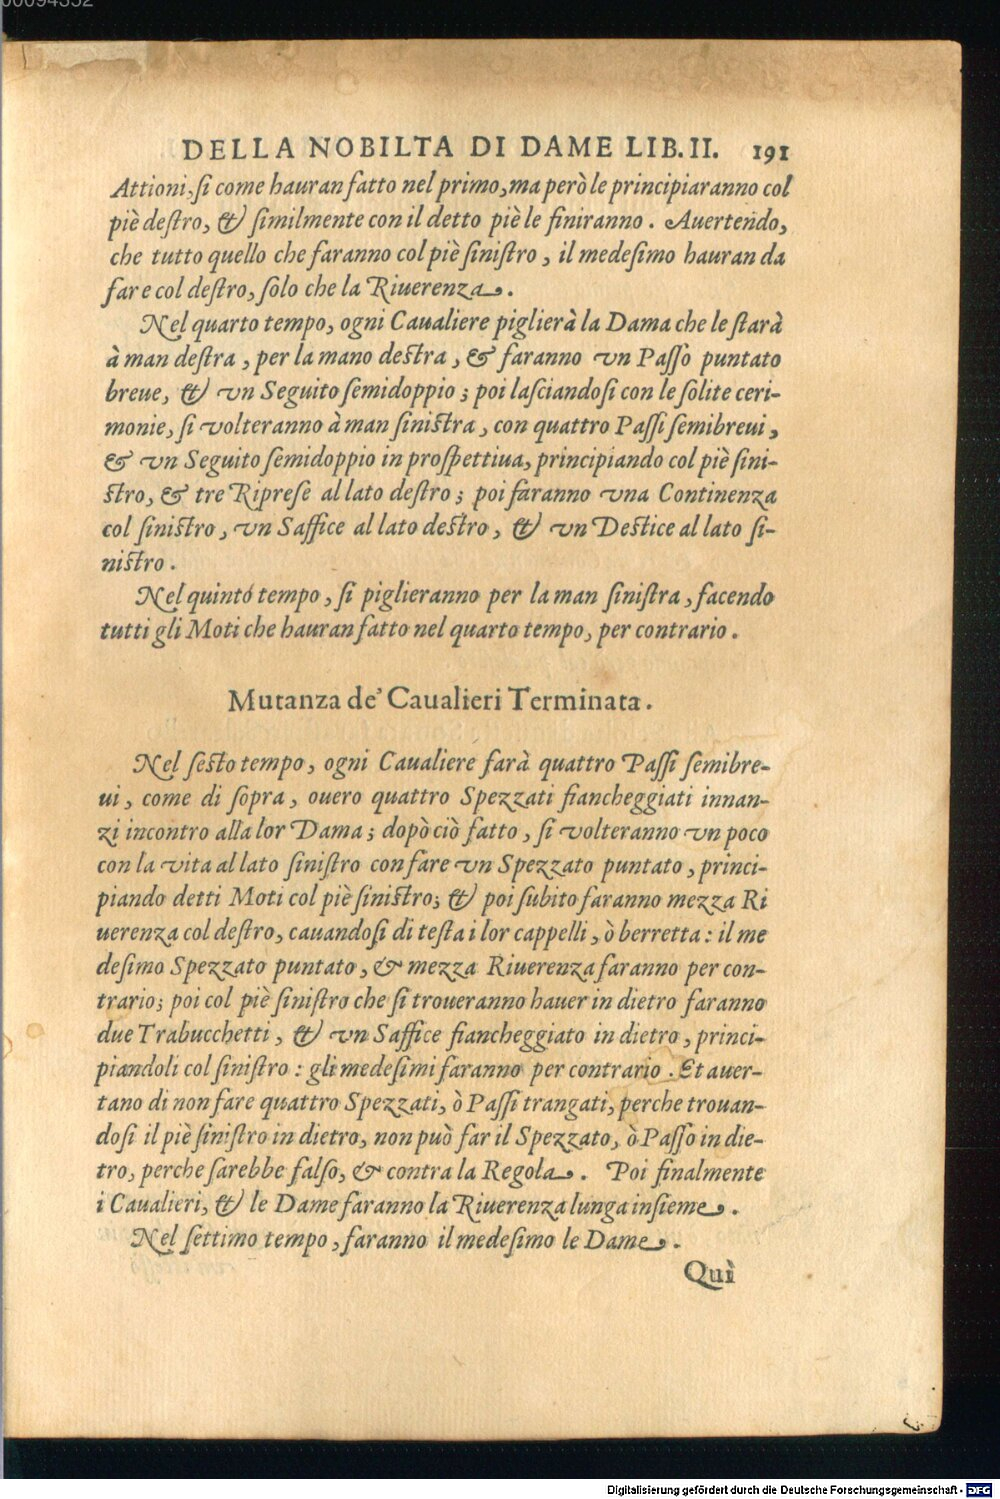 DELLA NOBILTA DI DAME LIB. II. 191
Attioni, si come hauran fatto nel primo, ma però le principiaranno col
piè destro, & similmente con il detto piè le finiranno. Auertendo,
che tutto quello che faranno col piè sinistro, il medesimo hauran da
fare col destro, solo che la Riuerenza.
Nel quarto tempo, ogni Caualiere piglierà la Dama che le starà
à man destra, per la mano destra, & faranno vn Passo puntato
breue, & vn Seguito semidoppio; poi lasciandosi con le solite ceri-
monie, si volteranno à man sinistra, con quattro Passi semibreui,
& vn Seguito semidoppio in prospettiua, principiando col piè sini-
stro, & tre Riprese al lato destro; poi faranno vna Continenza
col sinistro, vn Saffice al lato destro, & vn Destice al lato si-
nistro.
Nel quintó tempo, si piglieranno per la man sinistra, facendo
tutti gli Moti che hauran fatto nel quarto tempo, per contrario.
Mutanza de' Caualieri Terminata.
Nel sesto tempo, ogni Caualiere farà quattro Passi semibre-
ui, come di sopra, ouero quattro Spezzati fiancheggiati innan-
zi incontro alla lor Dama; dopò ciò fatto, si volteranno vn poco
con la vita al lato sinistro con fare vn Spezzato puntato, princi-
piando detti Moti col piè sinistro; & poi subito faranno mezza Ri
uerenza col destro, cauandosi di testa i lor cappelli, ò berretta: il me
desimo Spezzato puntato, & mezza Riuerenza faranno per con-
trario; poi col piè sinistro che si troueranno hauer in dietro faranno
due Trabucchetti, & vn Saffice fiancheggiato in dietro, princi-
piandoli col sinistro: gli medesimi faranno per contrario. Et auer-
tano di non fare quattro Spezzati, ò Passi trangati, perche trouan-
dosi il piè sinistro in dietro, non può far il Spezzato, ò Passo in die-
tro, perche sarebbe falso, & contra la Regola. Poi finalmente
i Caualieri, & le Dame faranno la Riuerenza lunga insieme.
Nel settimo tempo, faranno il medesimo le Dame.
Quì
Digitalisierung gefördert durch die Deutsche Forschungsgemeinschaft - DFG